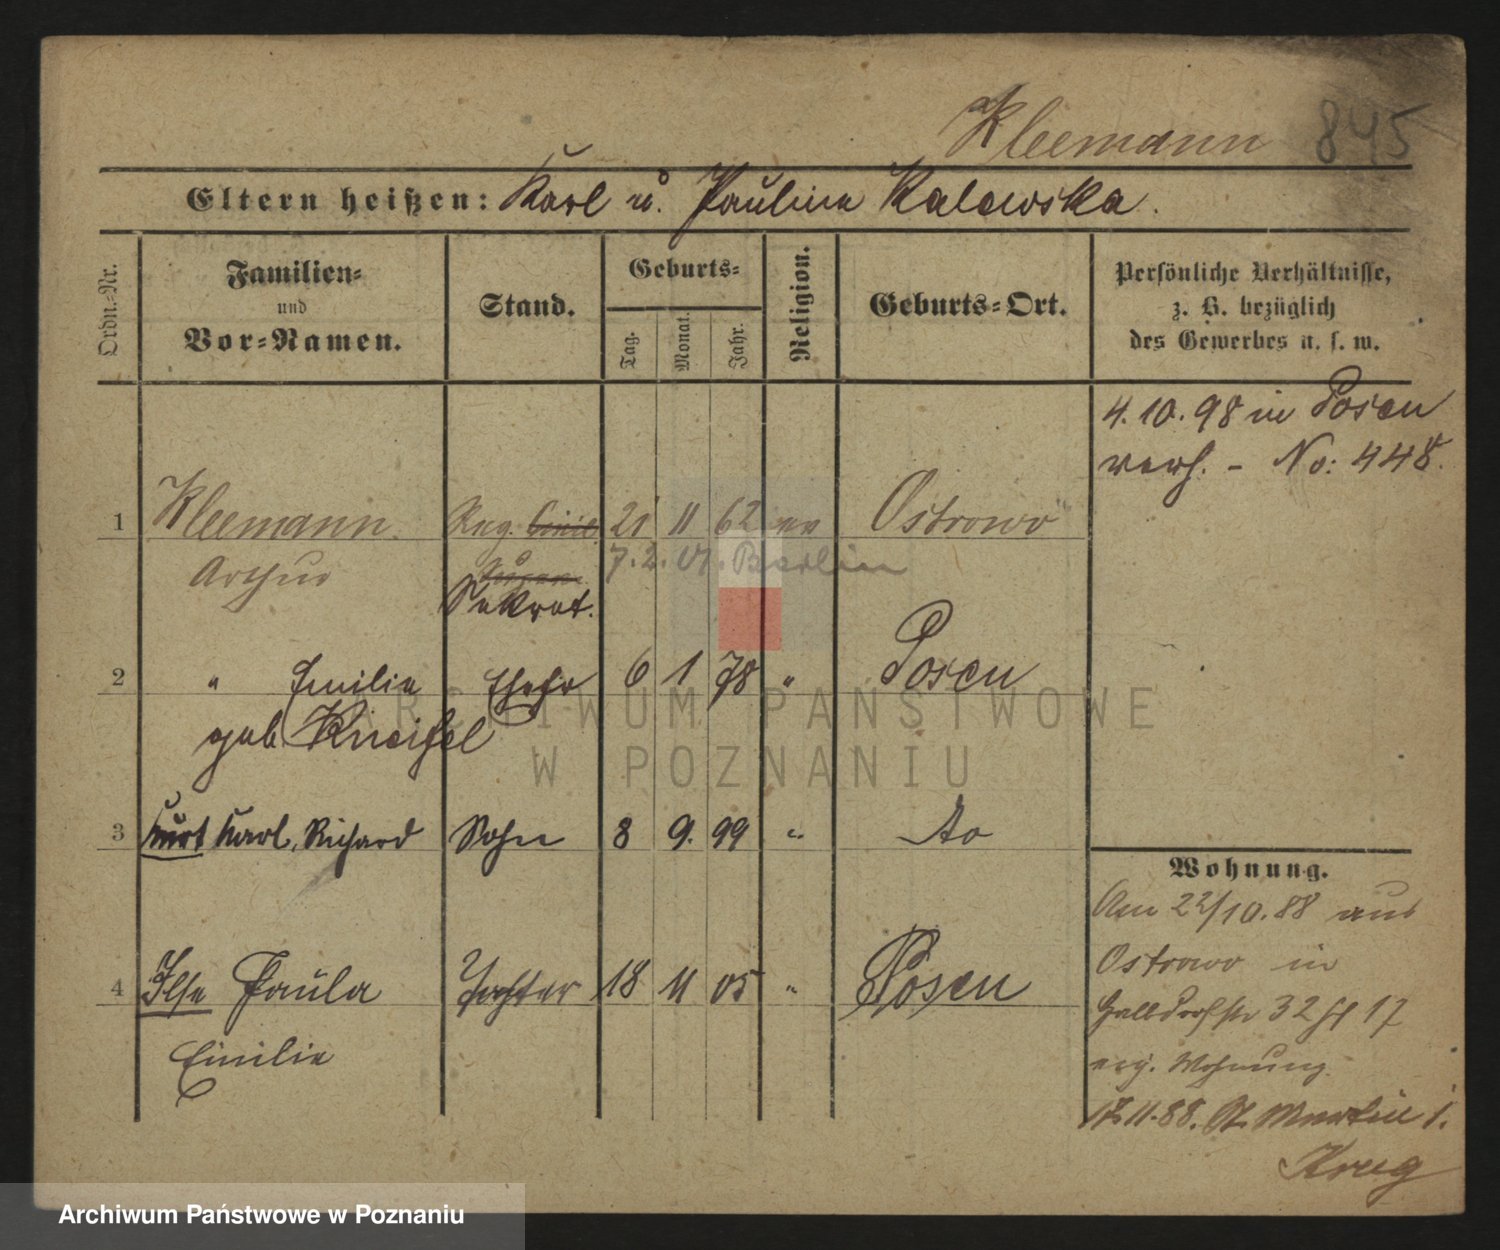 Kleemann 845
Eltern heißen: Karl u. Paulina Kalawska.
Ordn.-Nr.
Familien-
und
Vor-Namen.
Stand.
Geburts-
Tag.
Monat.
Jahr.
Religion.
Geburts-Ort.
Persönliche Verhältnisse,
z. B. bezüglich
des Gewerbes u. s. w.
4.10.98 in Posen
verh. - No: 448.
1 Kleemann Reg. Civil 21 11 62 ev Ostrowo
Arthur
7.2.01. Berlin
Sekret.
2 " Emilie Ehefr 6 1 78 " Posen
geb. Kneifel
3 Kurt Karl, Richard Sohn 8 9. 99 " do
4 Ilse Paula Tochter 18 11 05 " Posen
Emilie
Wohnung.
Am 22/10.88 aus
Ostrowo in
Halbdorfstr 32 17
Wohnung.
11.88. St. Martin 1.
Krug
ARCHIWUM PAŃSTWOWE
W POZNANIU
Archiwum Państwowe w Poznaniu